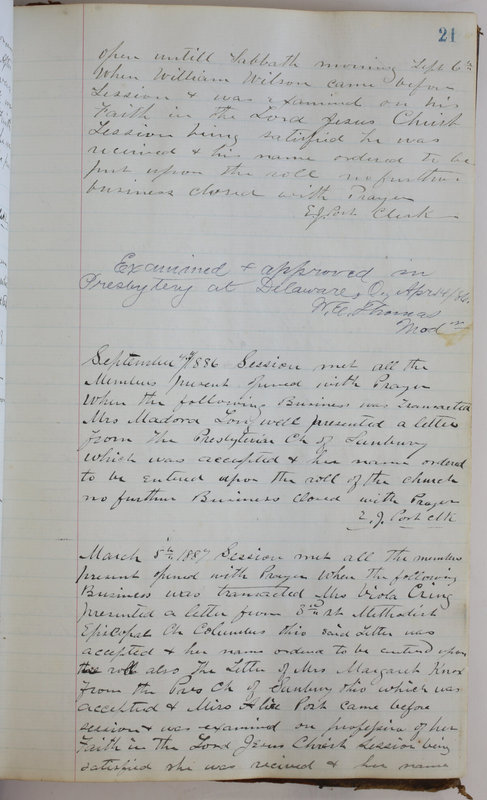 21
open untill Sabbath morning Sept 6th
When William Wilson came before
Session & was examined on his
Faith in The Lord Jesus Christ
Session being satisfied he was
received & his name ordered to be
put upon the roll no further
business closed with Prayer
E.J. Post Clerk
Examined & approved in
Presbytery at Delaware, O, Apr 14/86.
W.E. Thomas
Mod
September 1886 Session met all the
Members present opened with Prayer
When the following Business was Transacted
Mrs Madora presented a letter
from The Presbyterian Ch of Sunbury
which was accepted & her name ordered
to be enterd upon the roll of the church
no further Business closed with Prayer
E. J. Post clk
March 5th 1887 Session met all the members
present opened with Prayer When the following
Business was transacted Mrs Viola
presented a letter from 3rd St Methodist
Episcopal Ch Columbus Ohio said Letter was
accepted & her name orderd to be enterd upon
the roll also The Letter of Mrs Margaret Knox
From the Pres Ch of Sunbury Ohio which was
accepted & Miss Alice Post came before
session & was examind on profession of her
Faith in The Lord Jesus Christ Session being
satisfied she was recieved & her name